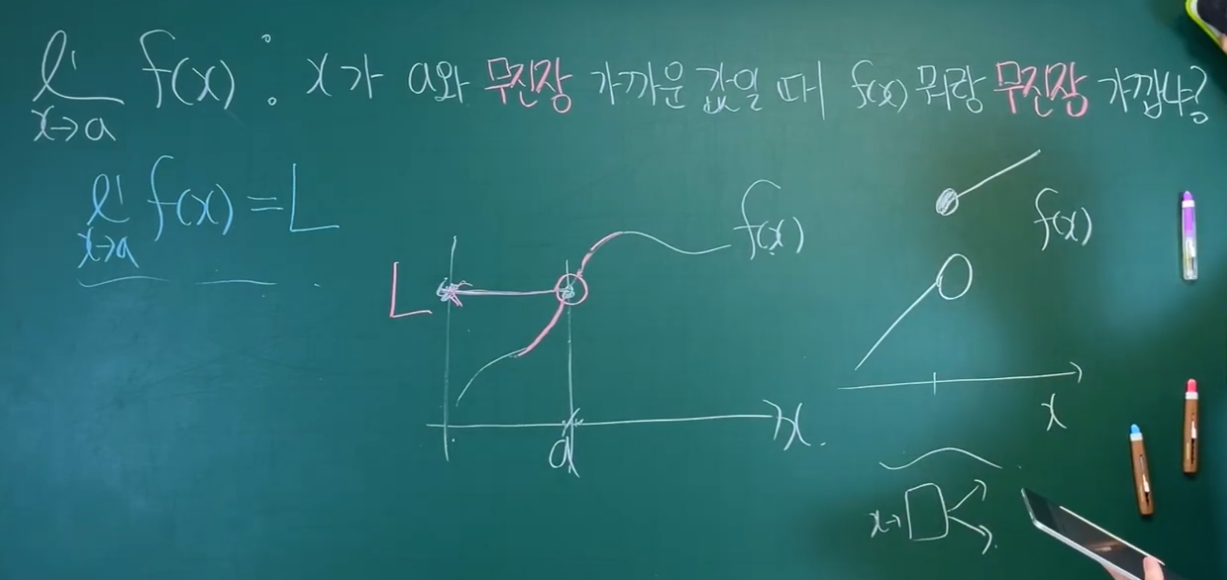 lim x→a f(x) : x가 a와 무진장 가까운 값일 때 f(x) 뭐랑 무진장 가깝냐?
lim x→a f(x) = L
f(x)
L
a
x
f(x)
x
x→